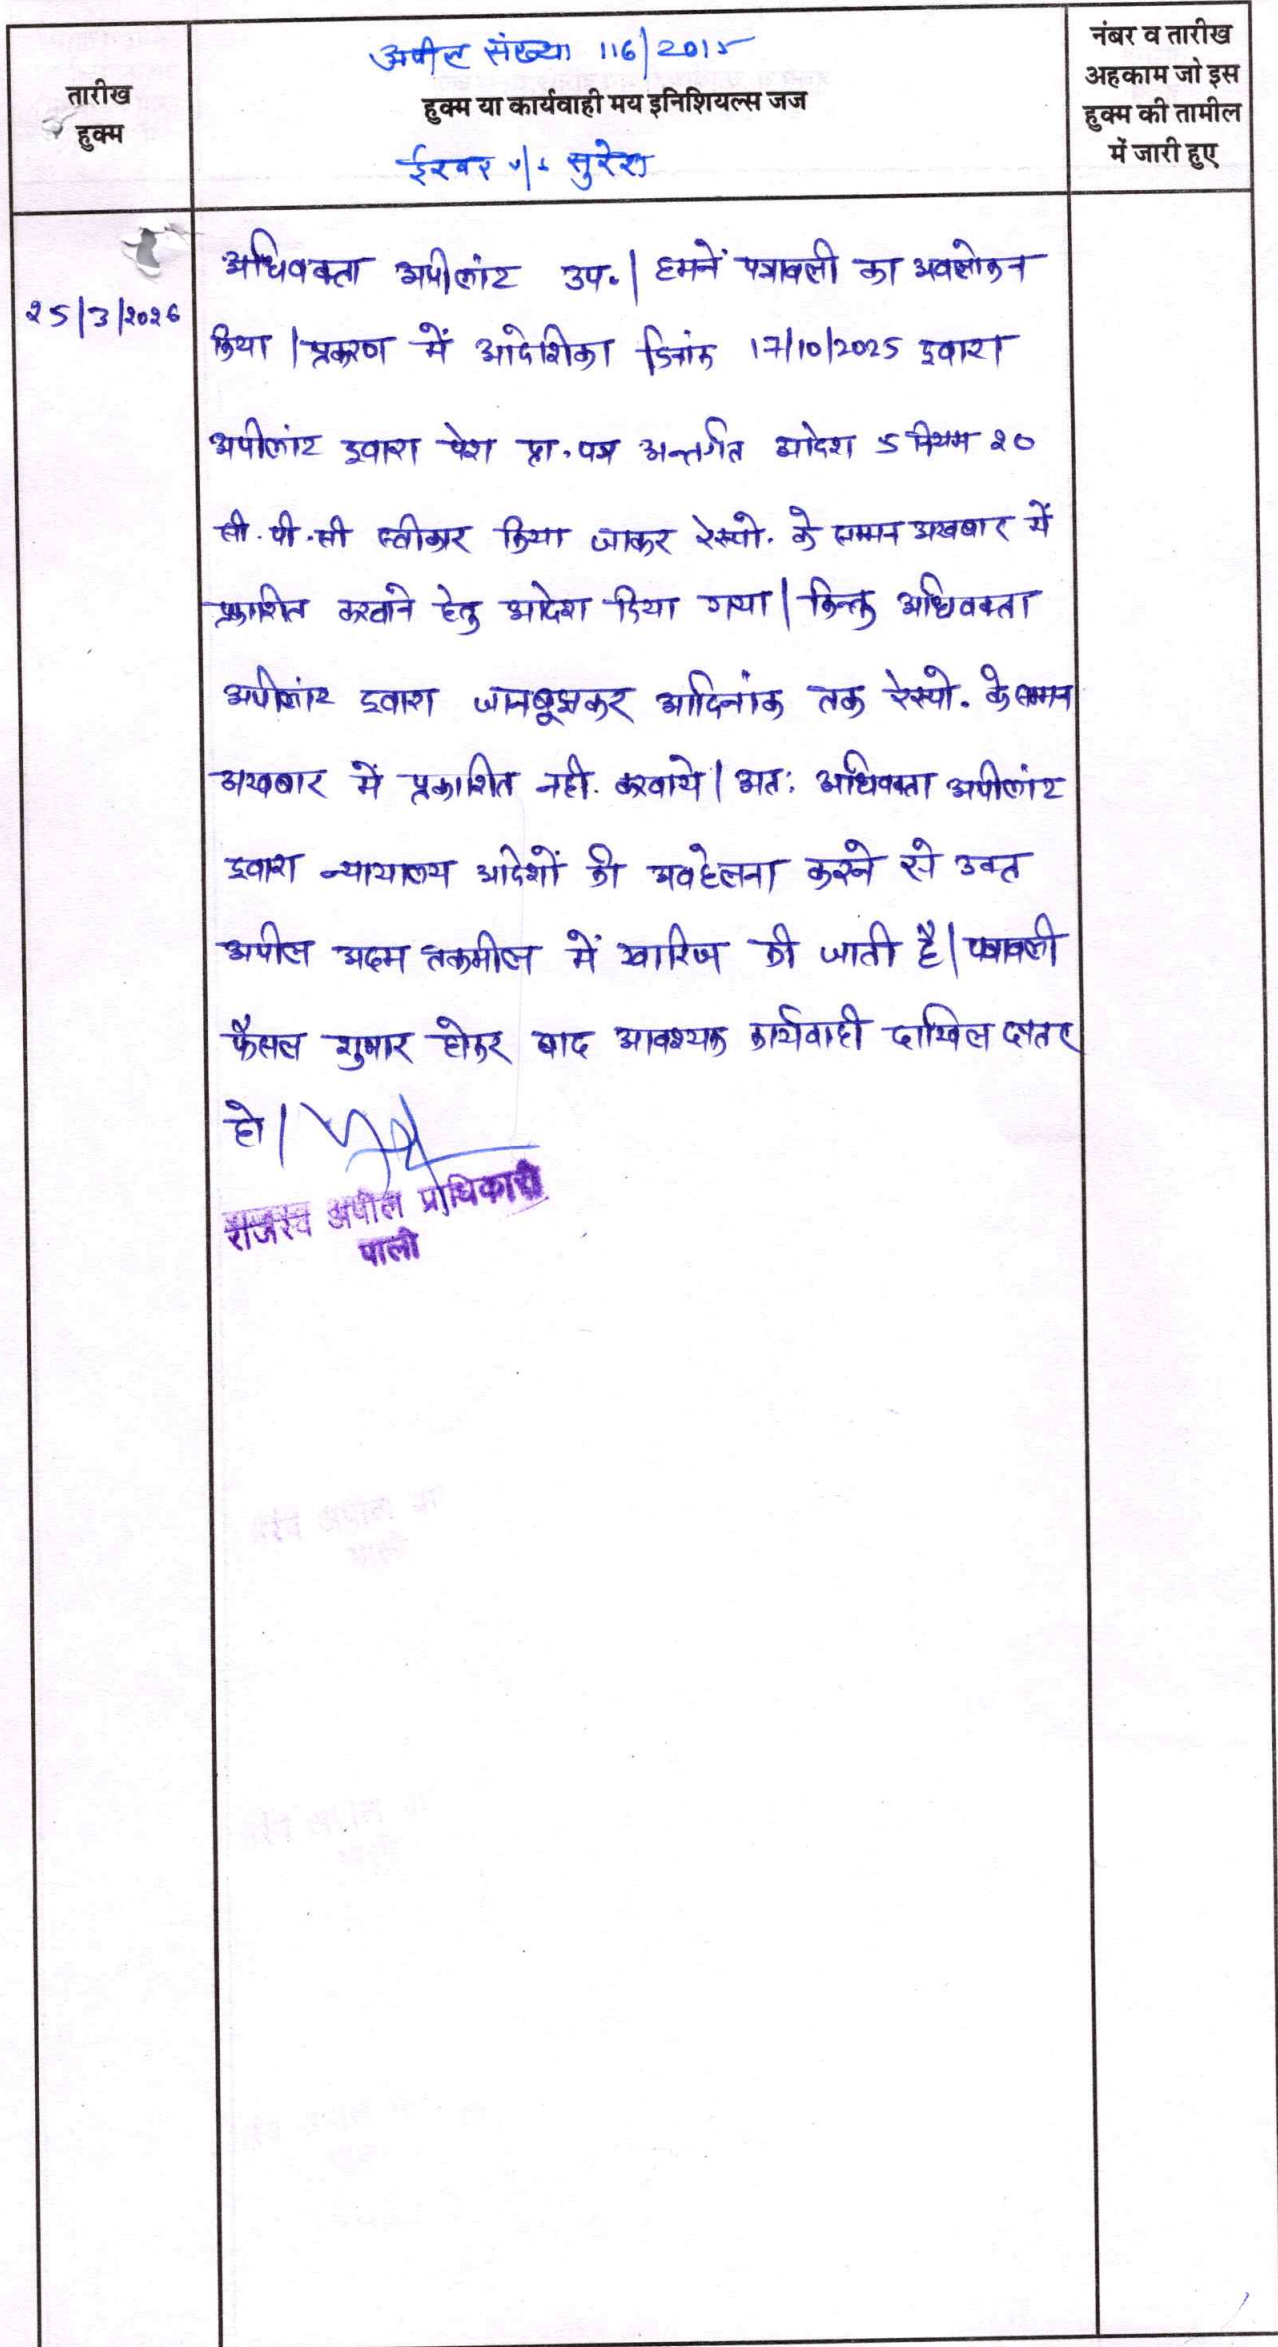 अपील संख्या 116/2015
तारीख
हुक्म
हुक्म या कार्यवाही मय इनिशियल्स जज
ईश्वर v/s सुरेश
नंबर व तारीख
अहकाम जो इस
हुक्म की तामील
में जारी हुए
25/3/2026
अधिवक्ता अपीलांट उप.| हमनें पत्रावली का अवलोकन
किया | प्रकरण में आदेशिका दिनांक 17/10/2025 द्वारा
अपीलांट द्वारा पेश प्रा.पत्र अन्तर्गत आदेश 5 नियम 20
सी.पी.सी स्वीकार किया जाकर रेस्पो. के सम्मन अखबार में
प्रकाशित करवाने हेतु आदेश दिया गया | किन्तु अधिवक्ता
अपीलांट द्वारा जानबूझकर आदिनांक तक रेस्पो. के सम्मन
अखबार में प्रकाशित नही. करवाये | अत: अधिवक्ता अपीलांट
द्वारा न्यायालय आदेशों की अवहेलना करने से उक्त
अपील अदम तकमील में खारिज की जाती है | पत्रावली
फैसल शुमार होकर बाद आवश्यक कार्यवाही दाखिल दफ्तर
हो |
राजस्व अपील प्राधिकारी
पाली